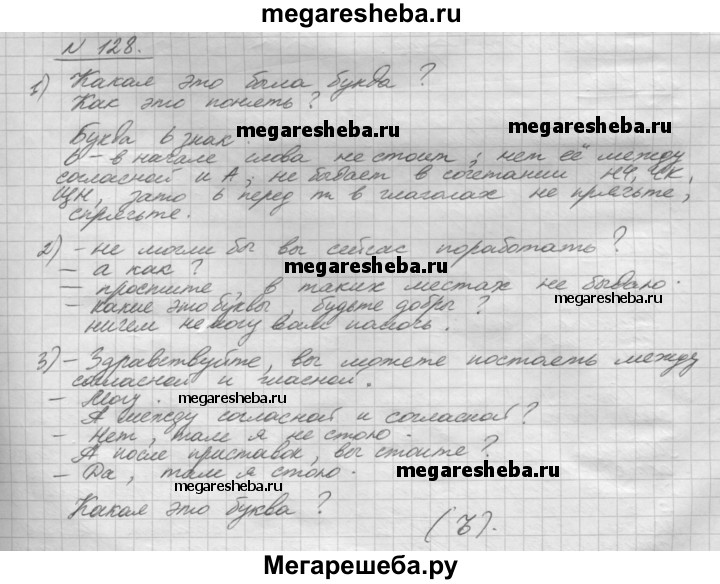 megaresheba.ru
N 128.
1) Какая это была буква ?
Как это понять ?
Буква ь знак.
megaresheba.ru
megaresheba.ru
О - в начале слова не стоит ; нет её между
согласной и А ; не бывает в сочетании НЧ, ЧК,
ЩН, зато ь перед т в глаголах не прячьте,
спрячьте.
2) - не могли бы вы сейчас поработать ?
- а как ?
megaresheba.ru
- простите , в таких местах не бываю.
- какие это буквы , будете добры ?
megaresheba.ru
ничем не могу вам помочь.
3) - Здравствуйте, вы можете постоять между
согласной и гласной.
- Могу .
megaresheba.ru
А между согласной и согласной ?
- Нет, там я не стою.
А после приставок, вы стоите ?
- Да, там я стою.
megaresheba.ru
megaresheba.ru
Какая это буква ?
(ъ).
Мегарешеба.ру